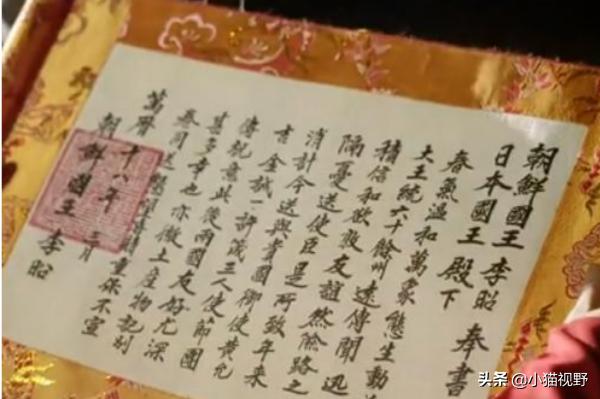 朝鮮國王 李昭 奉書
日本國王 殿下
春氣溫和萬象態生動
大王統六十餘州 遠傳聞迅
積信和欲敦友誼然險路之
隔憂送使臣是所致年来
清計今送與貴國御使黄允
吉金誠一許筬三人使節團
傳祝意此後兩國友好尤深
甚多幸也亦微土産物記別
同送重保不宣
萬曆十八年 三月
朝鮮國王 李昭
头条 @小猫视野